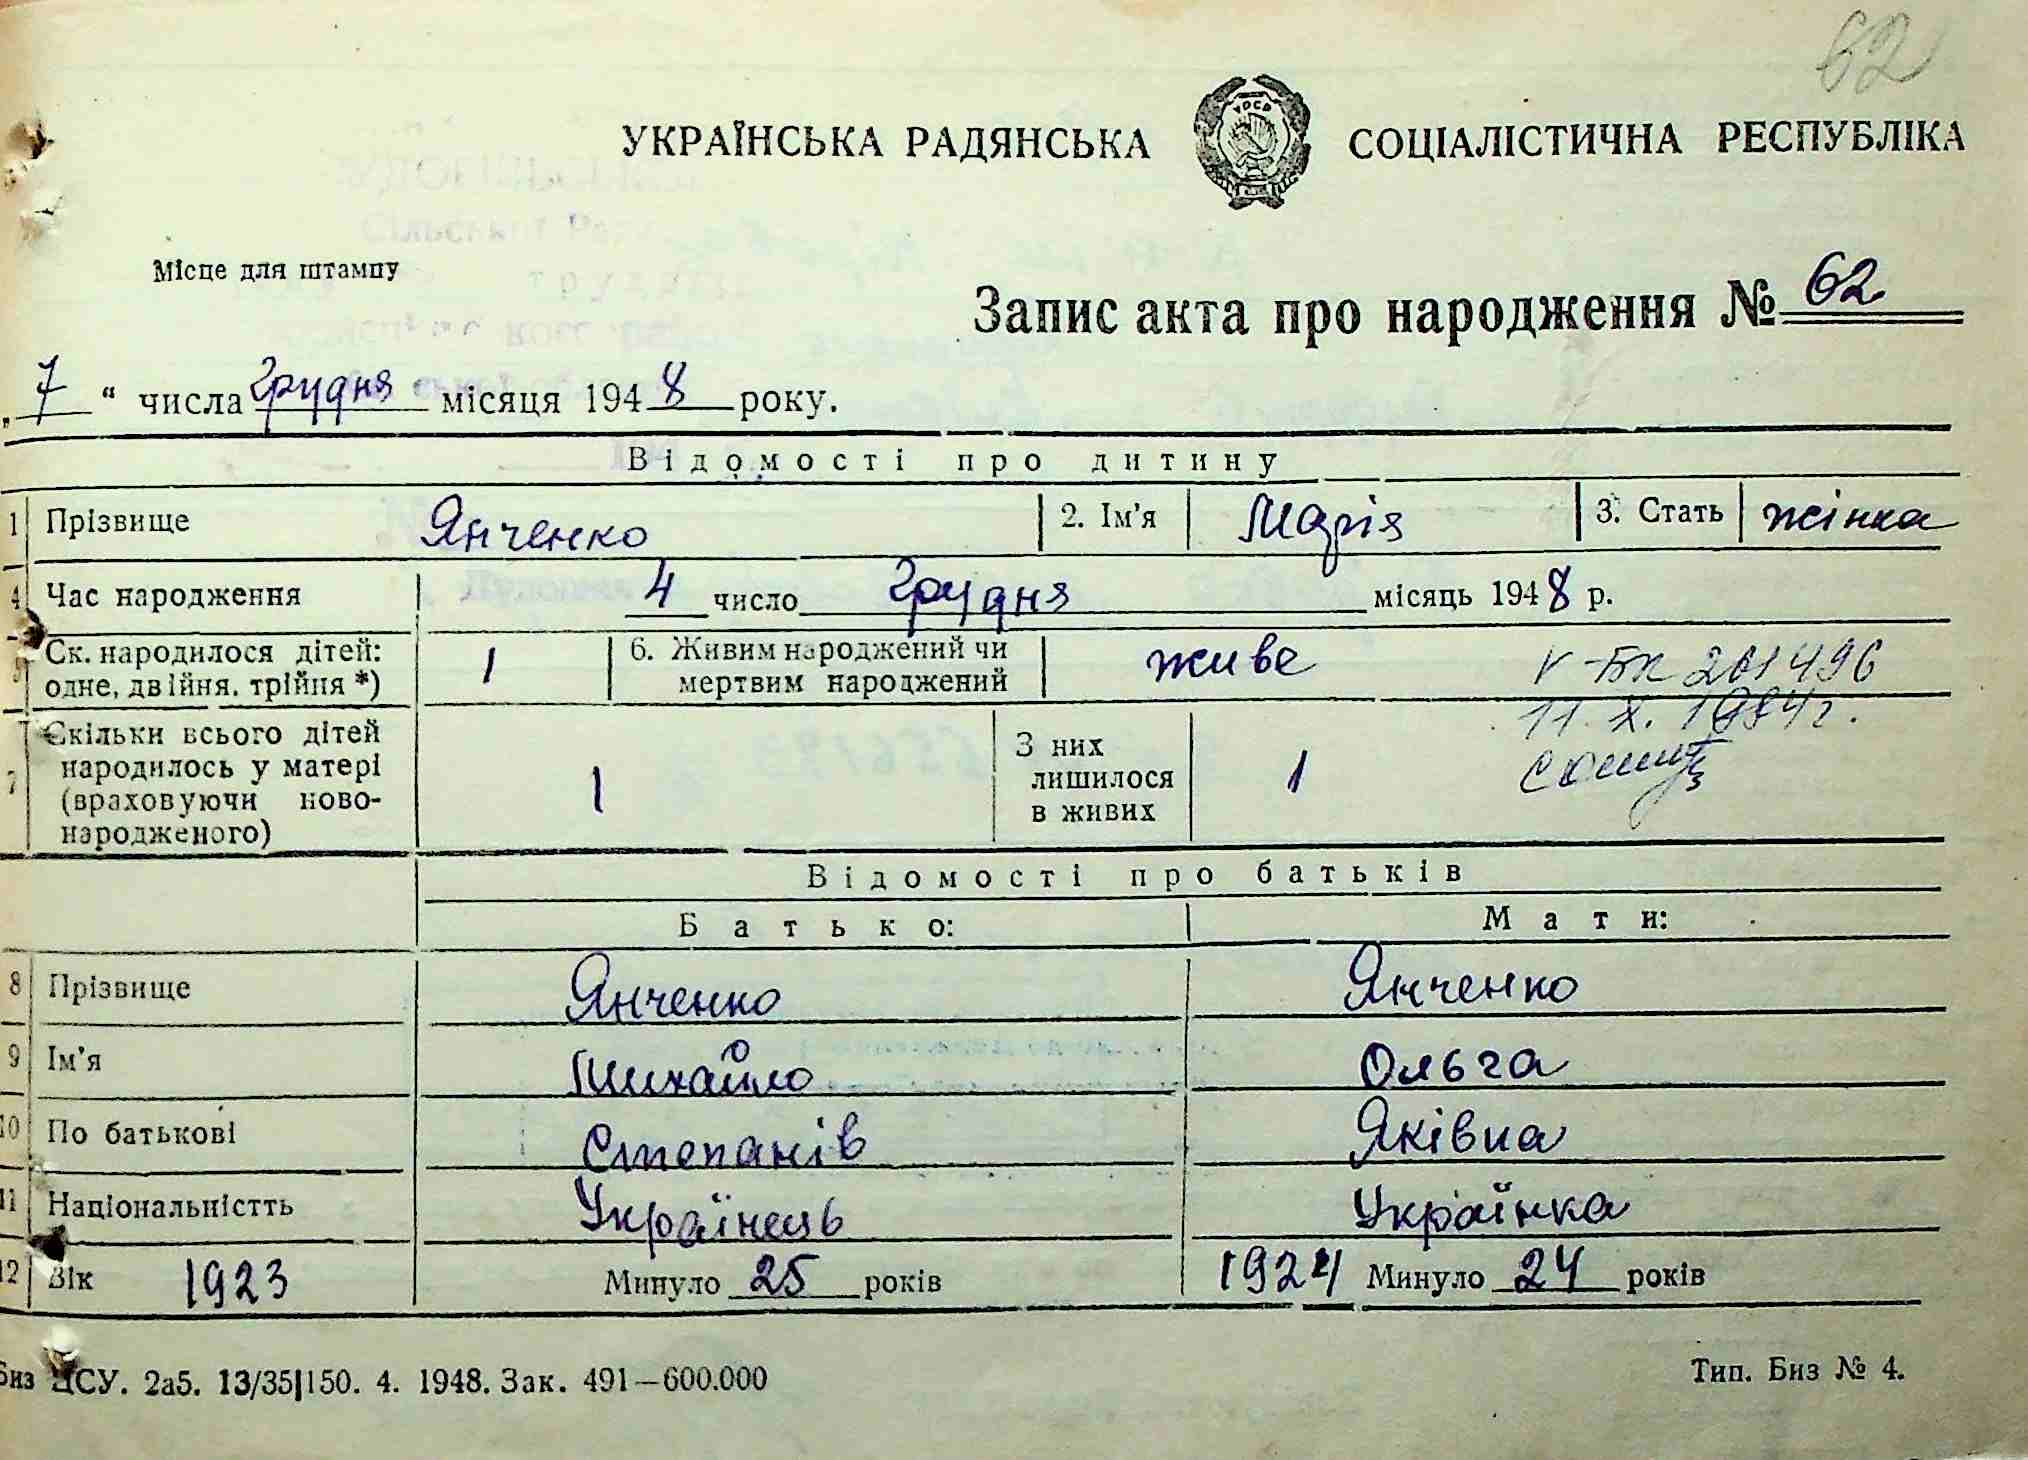 62
УКРАЇНСЬКА РАДЯНСЬКА СОЦІАЛІСТИЧНА РЕСПУБЛІКА
УРСР
Місце для штампу
Запис акта про народження № 62
„ 7 “ числа грудня місяця 1948 року.
Відомості про дитину
1 Прізвище Янченко 2. Ім'я Марія 3. Стать жінка
4 Час народження 4 число грудня місяць 1948 р.
5 Ск. народилося дітей: одне, двійня, трійня *) 1 6. Живим народжений чи мертвим народжений живе
V-БК 261496
11. X. 1984г.
7 Скільки всього дітей народилось у матері (враховуючи ново-народженого) 1 З них лишилося в живих 1
Відомості про батьків
Батько: Мати:
8 Прізвище Янченко Янченко
9 Ім'я Михайло Ольга
10 По батькові Степанів Яківна
11 Національністть Українець Українка
12 Вік 1923 Минуло 25 років 1924 Минуло 24 років
Биз ЦСУ. 2а5. 13/35|150. 4. 1948. Зак. 491—600.000
Тип. Биз № 4.